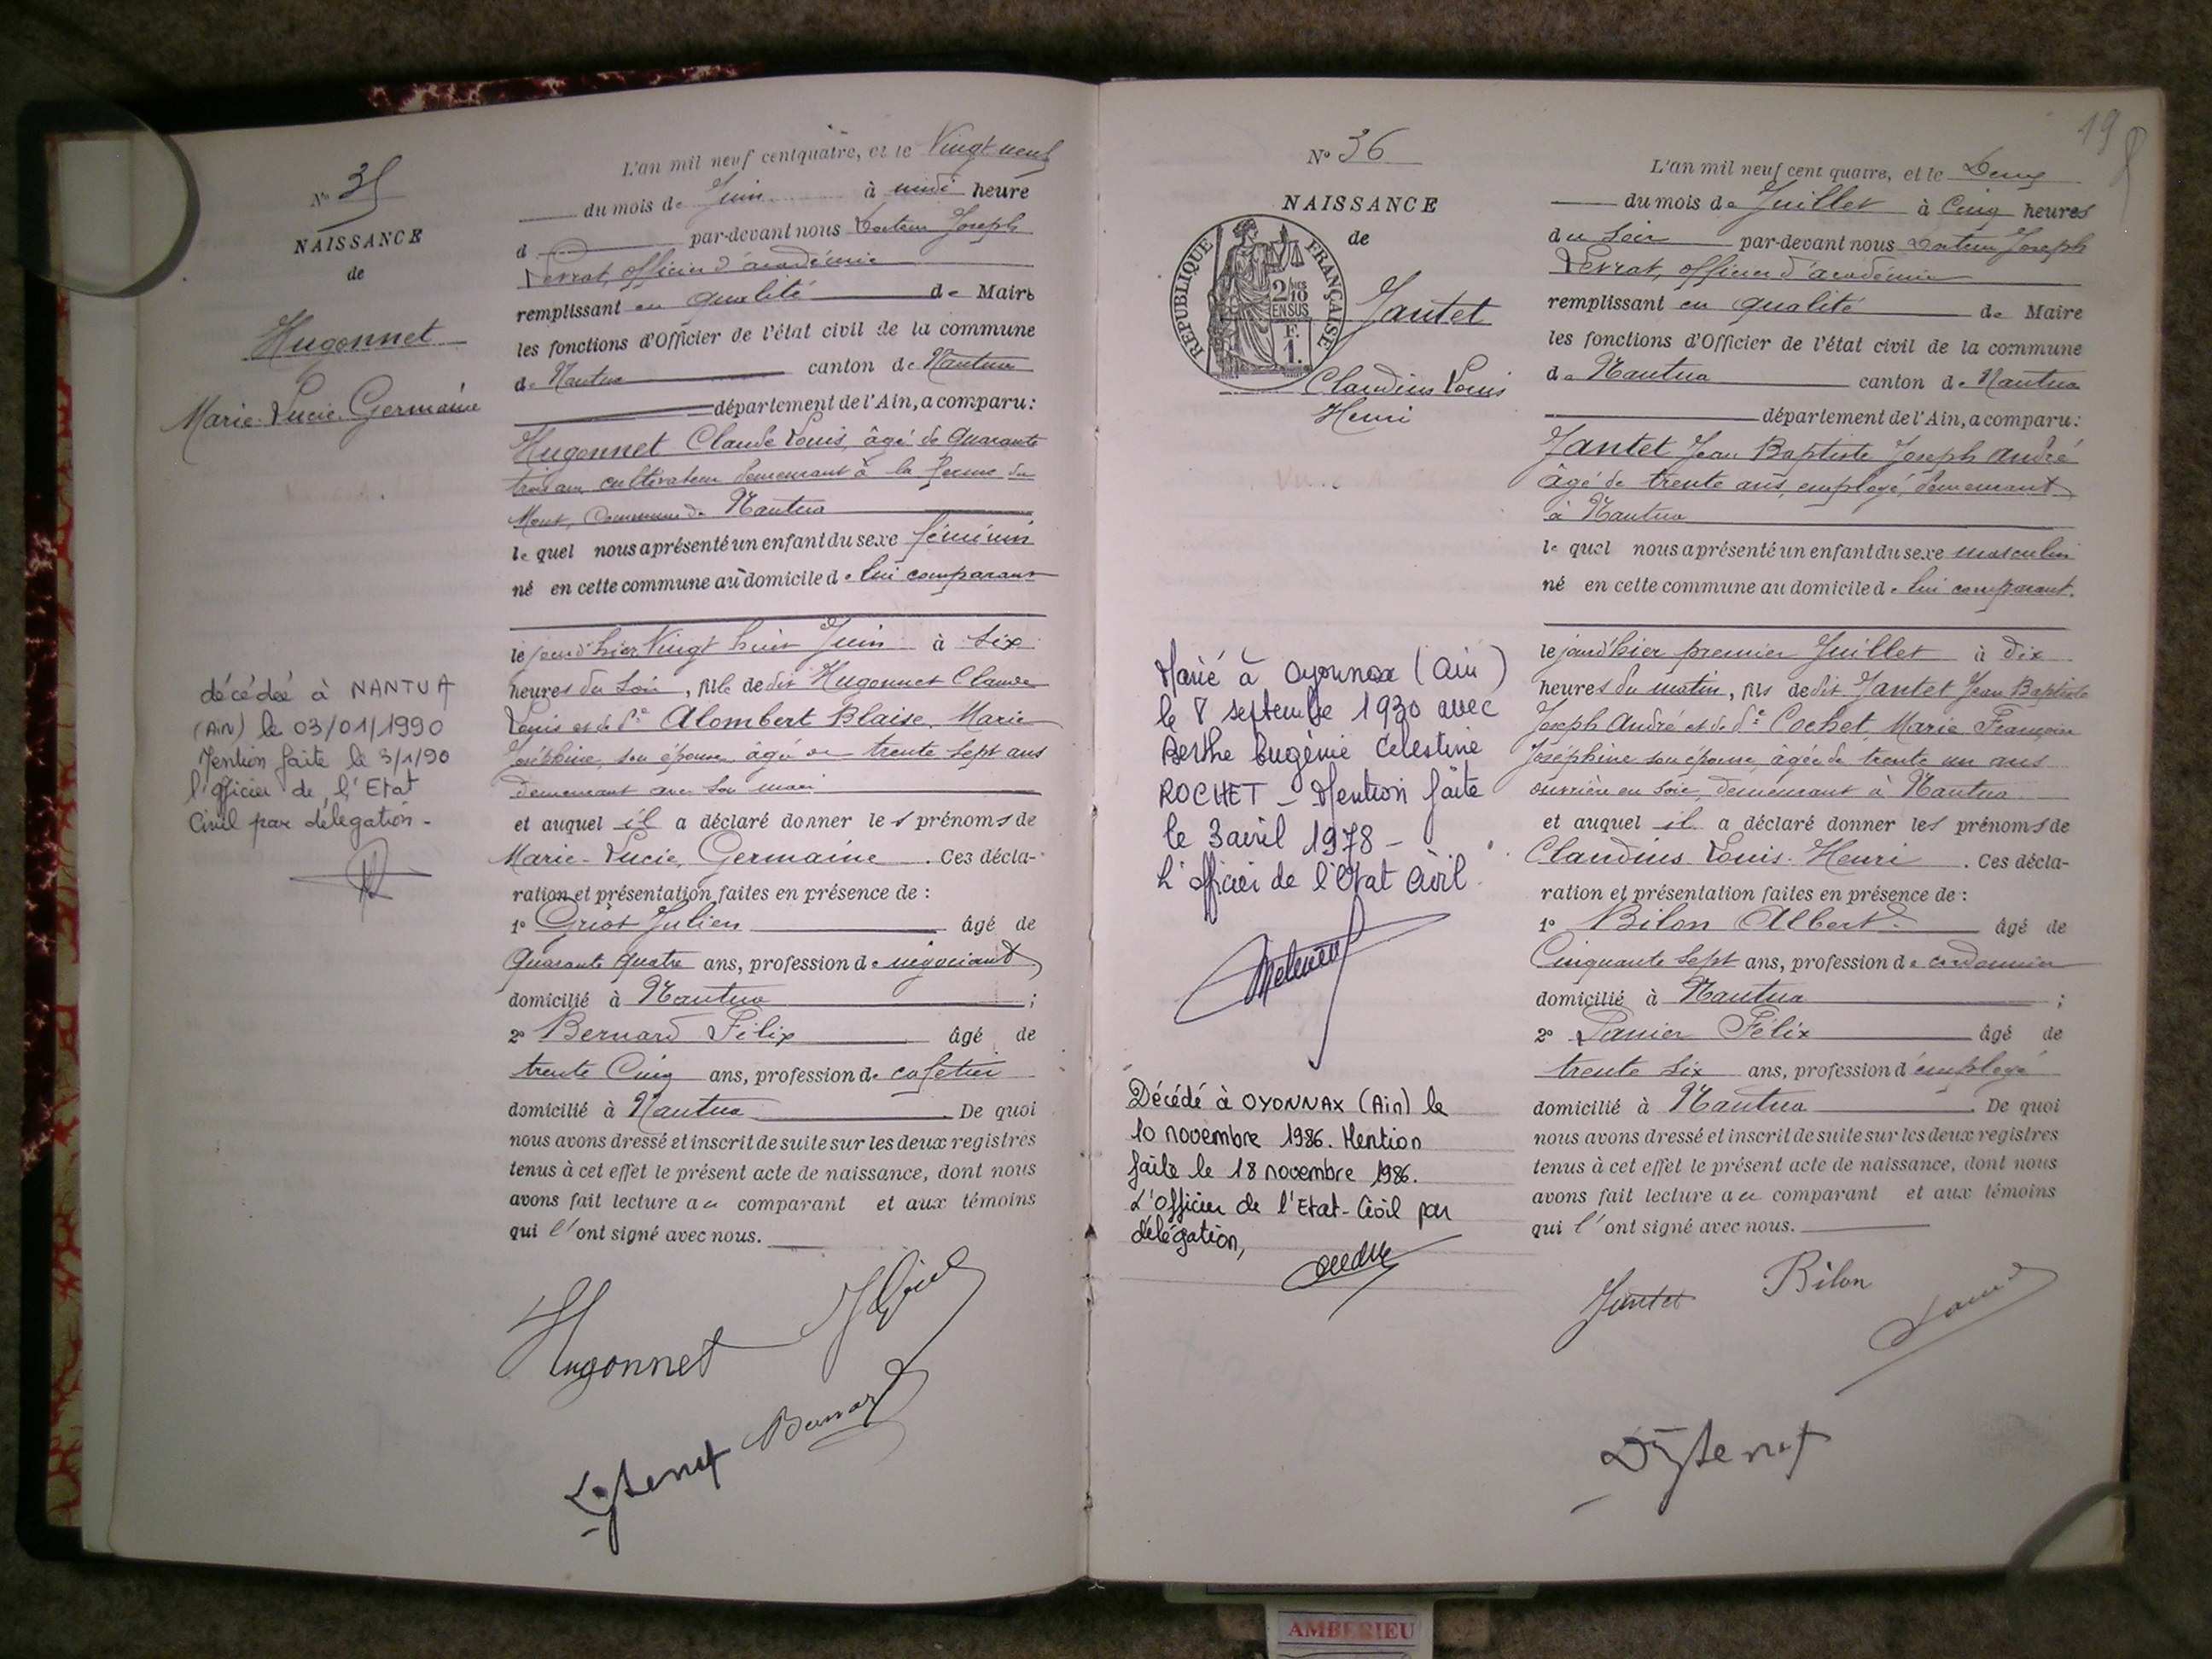 N° 35
NAISSANCE
de
Hugonnet
Marie-Lucie Germaine
décédée à NANTUA
(AIN) le 03/01/1990
Mention faite le 3/1/90
l'officier de l'Etat
Civil par délégation -
L'an mil neuf cent quatre, et le Vingt neuf
du mois de Juin à midi heure
d par-devant nous Docteur Joseph
Levrat, officier d'académie
remplissant en qualité de Maire
les fonctions d'Officier de l'état civil de la commune
de Nantua canton de Nantua
département de l'Ain, a comparu:
Hugonnet Claude Louis, âgé de quarante
trois ans, cultivateur demeurant à la ferme du
Mont, Commune de Nantua
le quel nous a présenté un enfant du sexe féminin
né en cette commune au domicile de lui comparant
le jourd'hier Vingt huit Juin à six
heures du soir, fille de dit Hugonnet Claude
Louis et de De Alombert Blaise, Marie
Joséphine, son épouse, âgée de trente sept ans
demeurant avec son mari
et auquel il a déclaré donner les prénoms de
Marie-Lucie, Germaine. Ces décla-
ration et présentation faites en présence de :
1° Griot Julien âgé de
quarante quatre ans, profession de négociant
domicilié à Nantua ;
2° Bernard Félix âgé de
trente Cinq ans, profession de cafetier
domicilié à Nantua. De quoi
nous avons dressé et inscrit de suite sur les deux registres
tenus à cet effet le présent acte de naissance, dont nous
avons fait lecture au comparant et aux témoins
qui l'ont signé avec nous.
Hugonnet
Bernard
19
N° 36
NAISSANCE
de
RÉPUBLIQUE FRANÇAISE
2/10 EN SUS
F.
1.
Jantet
Claudius Louis
Henri
Marié à Oyonnax (Ain)
le 8 septembre 1930 avec
Berthe Eugénie Célestine
ROCHET - Mention faite
le 3 avril 1978 -
L'officier de l'Etat Civil.
Décédé à OYONNAX (Ain) le
10 novembre 1986. Mention
faite le 18 novembre 1986.
L'officier de l'Etat-Civil par
délégation,
L'an mil neuf cent quatre, et le Deux
du mois de Juillet à Cinq heures
du soir par-devant nous Docteur Joseph
Levrat, officier d'académie
remplissant en qualité de Maire
les fonctions d'Officier de l'état civil de la commune
de Nantua canton de Nantua
département de l'Ain, a comparu:
Jantet Jean Baptiste Joseph André
âgé de trente ans, employé, demeurant
à Nantua
le quel nous a présenté un enfant du sexe masculin
né en cette commune au domicile de lui comparant.
le jourd'hier premier Juillet à dix
heures du matin, fils de dit Jantet Jean Baptiste
Joseph André et de De Cochet, Marie Françoise
Joséphine son épouse, âgée de trente un ans
ouvrière en soie, demeurant à Nantua
et auquel il a déclaré donner les prénoms de
Claudius Louis-Henri. Ces décla-
ration et présentation faites en présence de :
1° Bilon Albert âgé de
Cinquante sept ans, profession de cordonnier
domicilié à Nantua ;
2° Panier Félix âgé de
trente six ans, profession d'employé
domicilié à Nantua. De quoi
nous avons dressé et inscrit de suite sur les deux registres
tenus à cet effet le présent acte de naissance, dont nous
avons fait lecture au comparant et aux témoins
qui l'ont signé avec nous.
Jantet Bilon
AMBERIEU